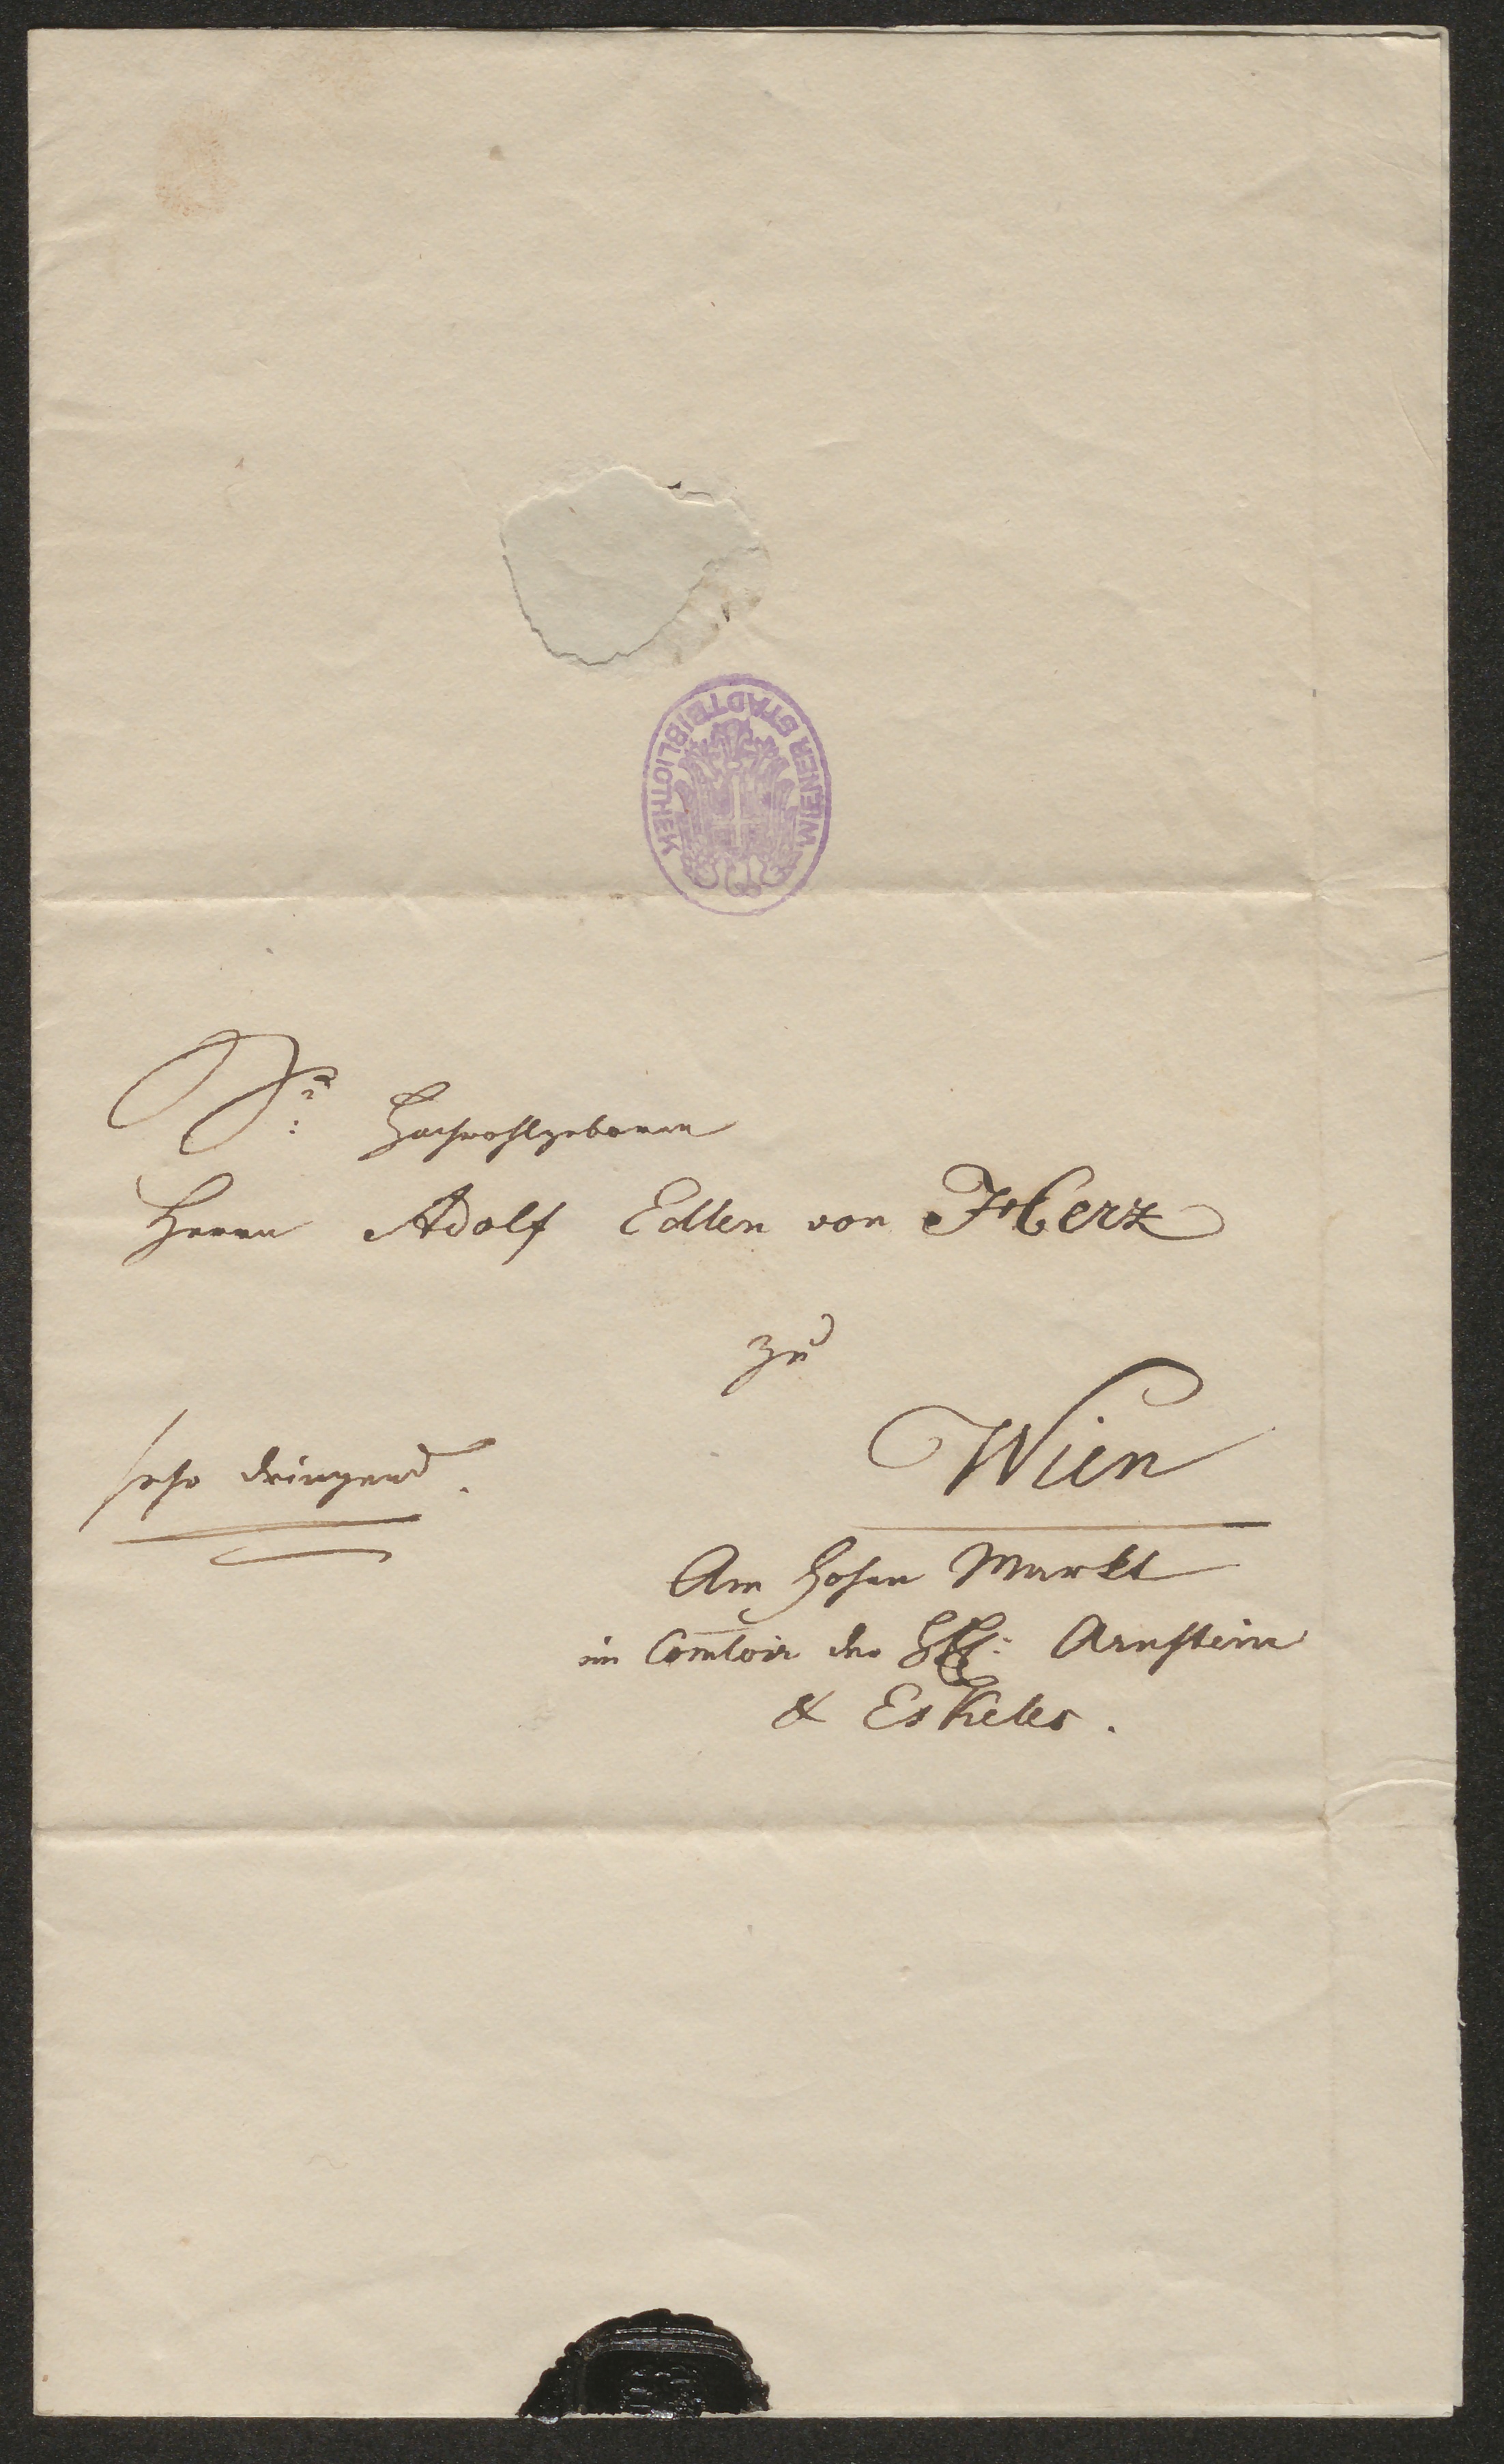 WIENER STADTBIBLIOTHEK
Sr: Hochwohlgeboren
Herrn Adolf Edlen von Herz
zu
Wien
sehr dringend.
Am hohen Markt
im Comtoir der HH: Arnstein
& Eskeles.